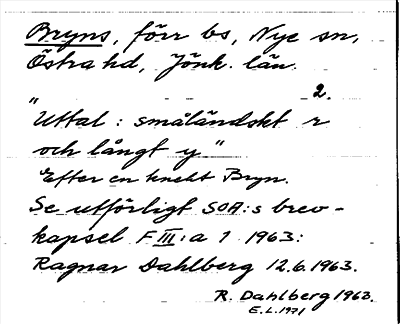 Bryns, förr bs, Nye sn,
Östra hd, Jönk. län.
2.
"Uttal: småländskt r
och långt y"
Efter en knekt Bryn.
Se utförligt SOA:s brev-
kapsel F III:a 1 1963:
Ragnar Dahlberg 12.6.1963.
R. Dahlberg 1963.
E.L. 1971